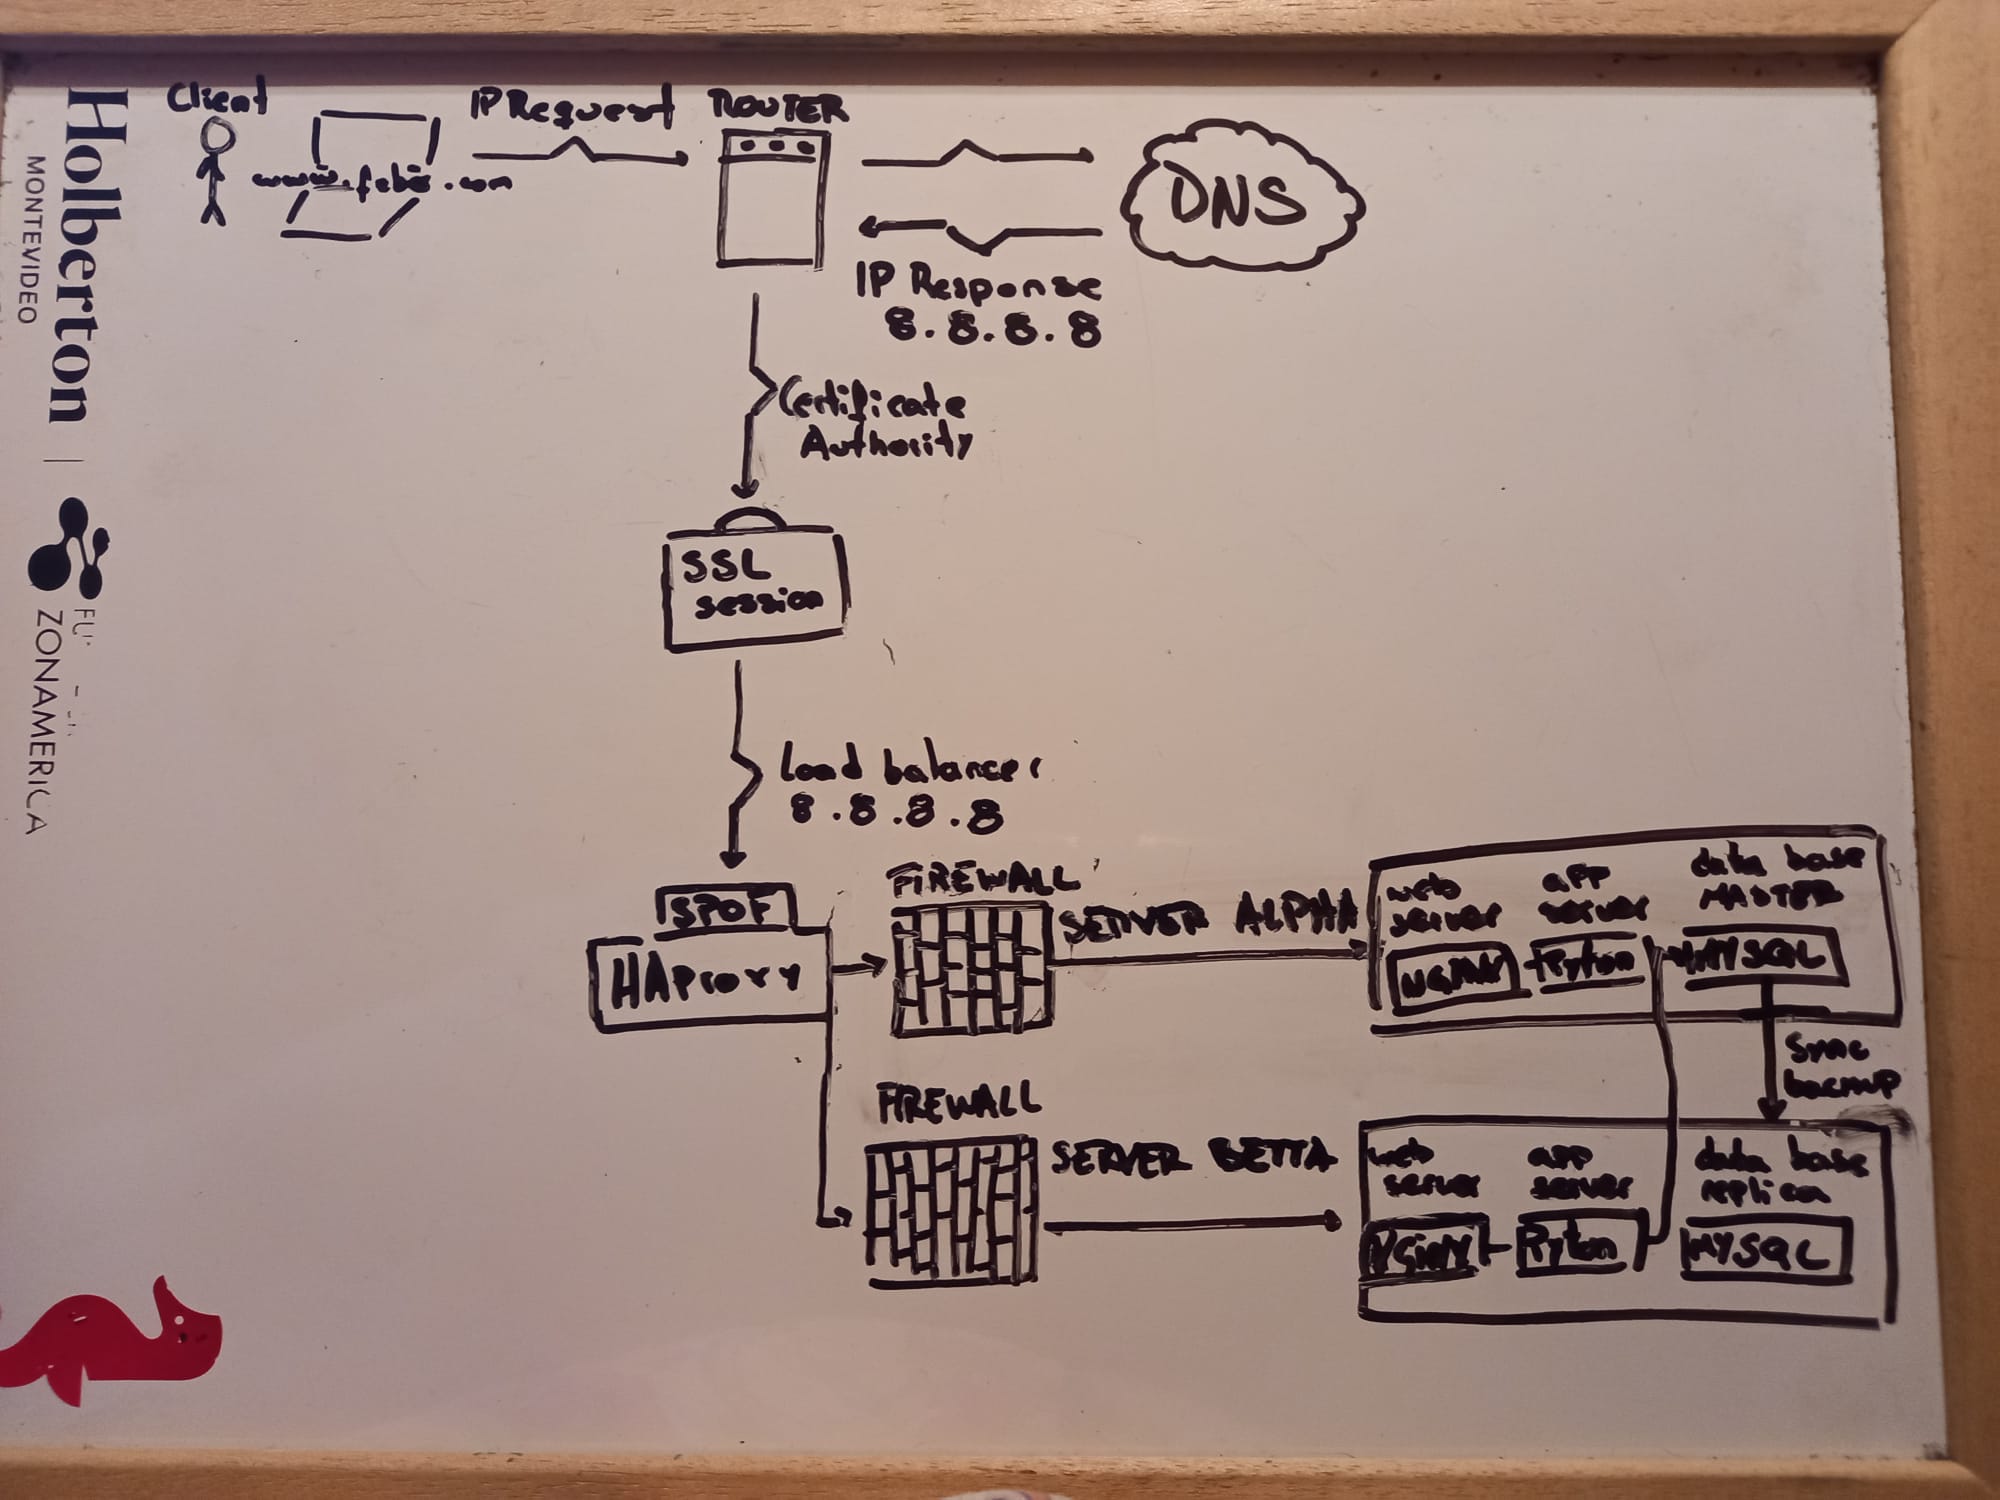 Holberton
MONTEVIDEO
ZONAMERICA
Client
IP Request
ROUTER
DNS
IP Response
8.8.8.8
Certificate
Authority
SSL
session
Load balancer
8.8.8.8
SPOF
HAproxy
FIREWALL
SERVER ALPHA
web
server
app
server
data base
MASTER
NGINX
Pyton
MYSQL
Sync
backup
FIREWALL
SERVER BETTA
web
server
app
server
data base
replica
NGINX
Pyton
MYSQL